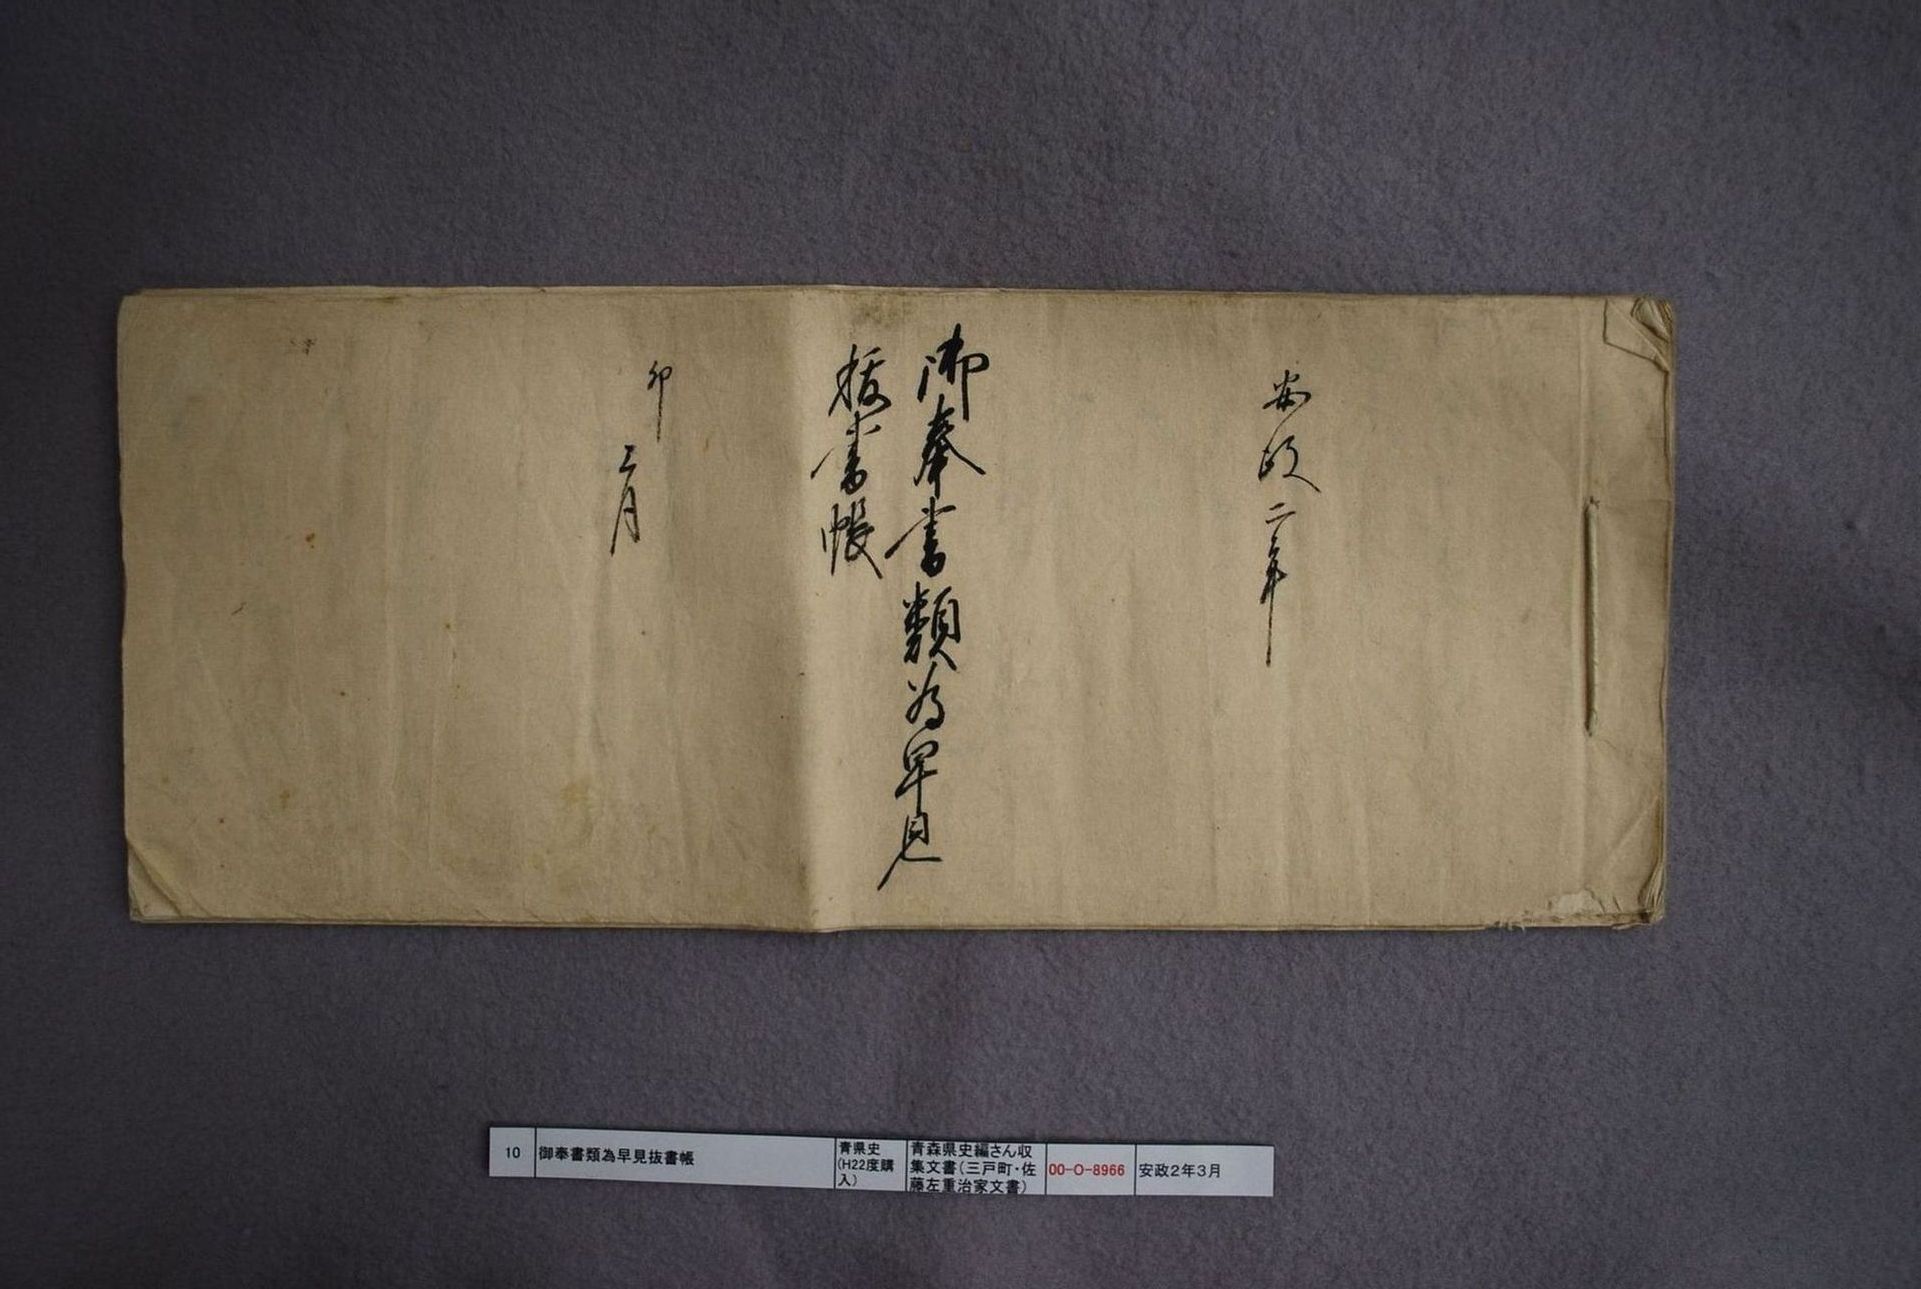 安政二年
御奉書類為早見
抜書帳
卯
三月
10
御奉書類為早見抜書帳
青県史
(H22度購
入)
青森県史編さん収
集文書(三戸町・佐
藤左重治家文書)
00-O-8966
安政2年3月